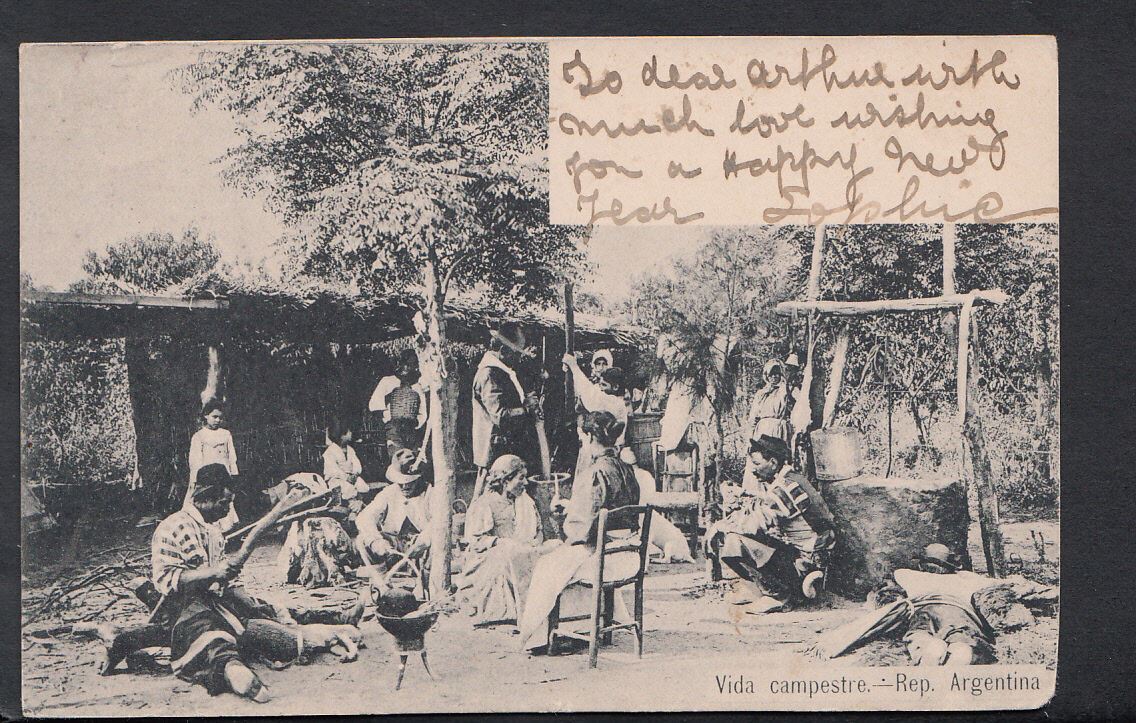 To dear Arthur with
much love wishing
you a Happy New
Year Sophie
Vida campestre.—Rep. Argentina